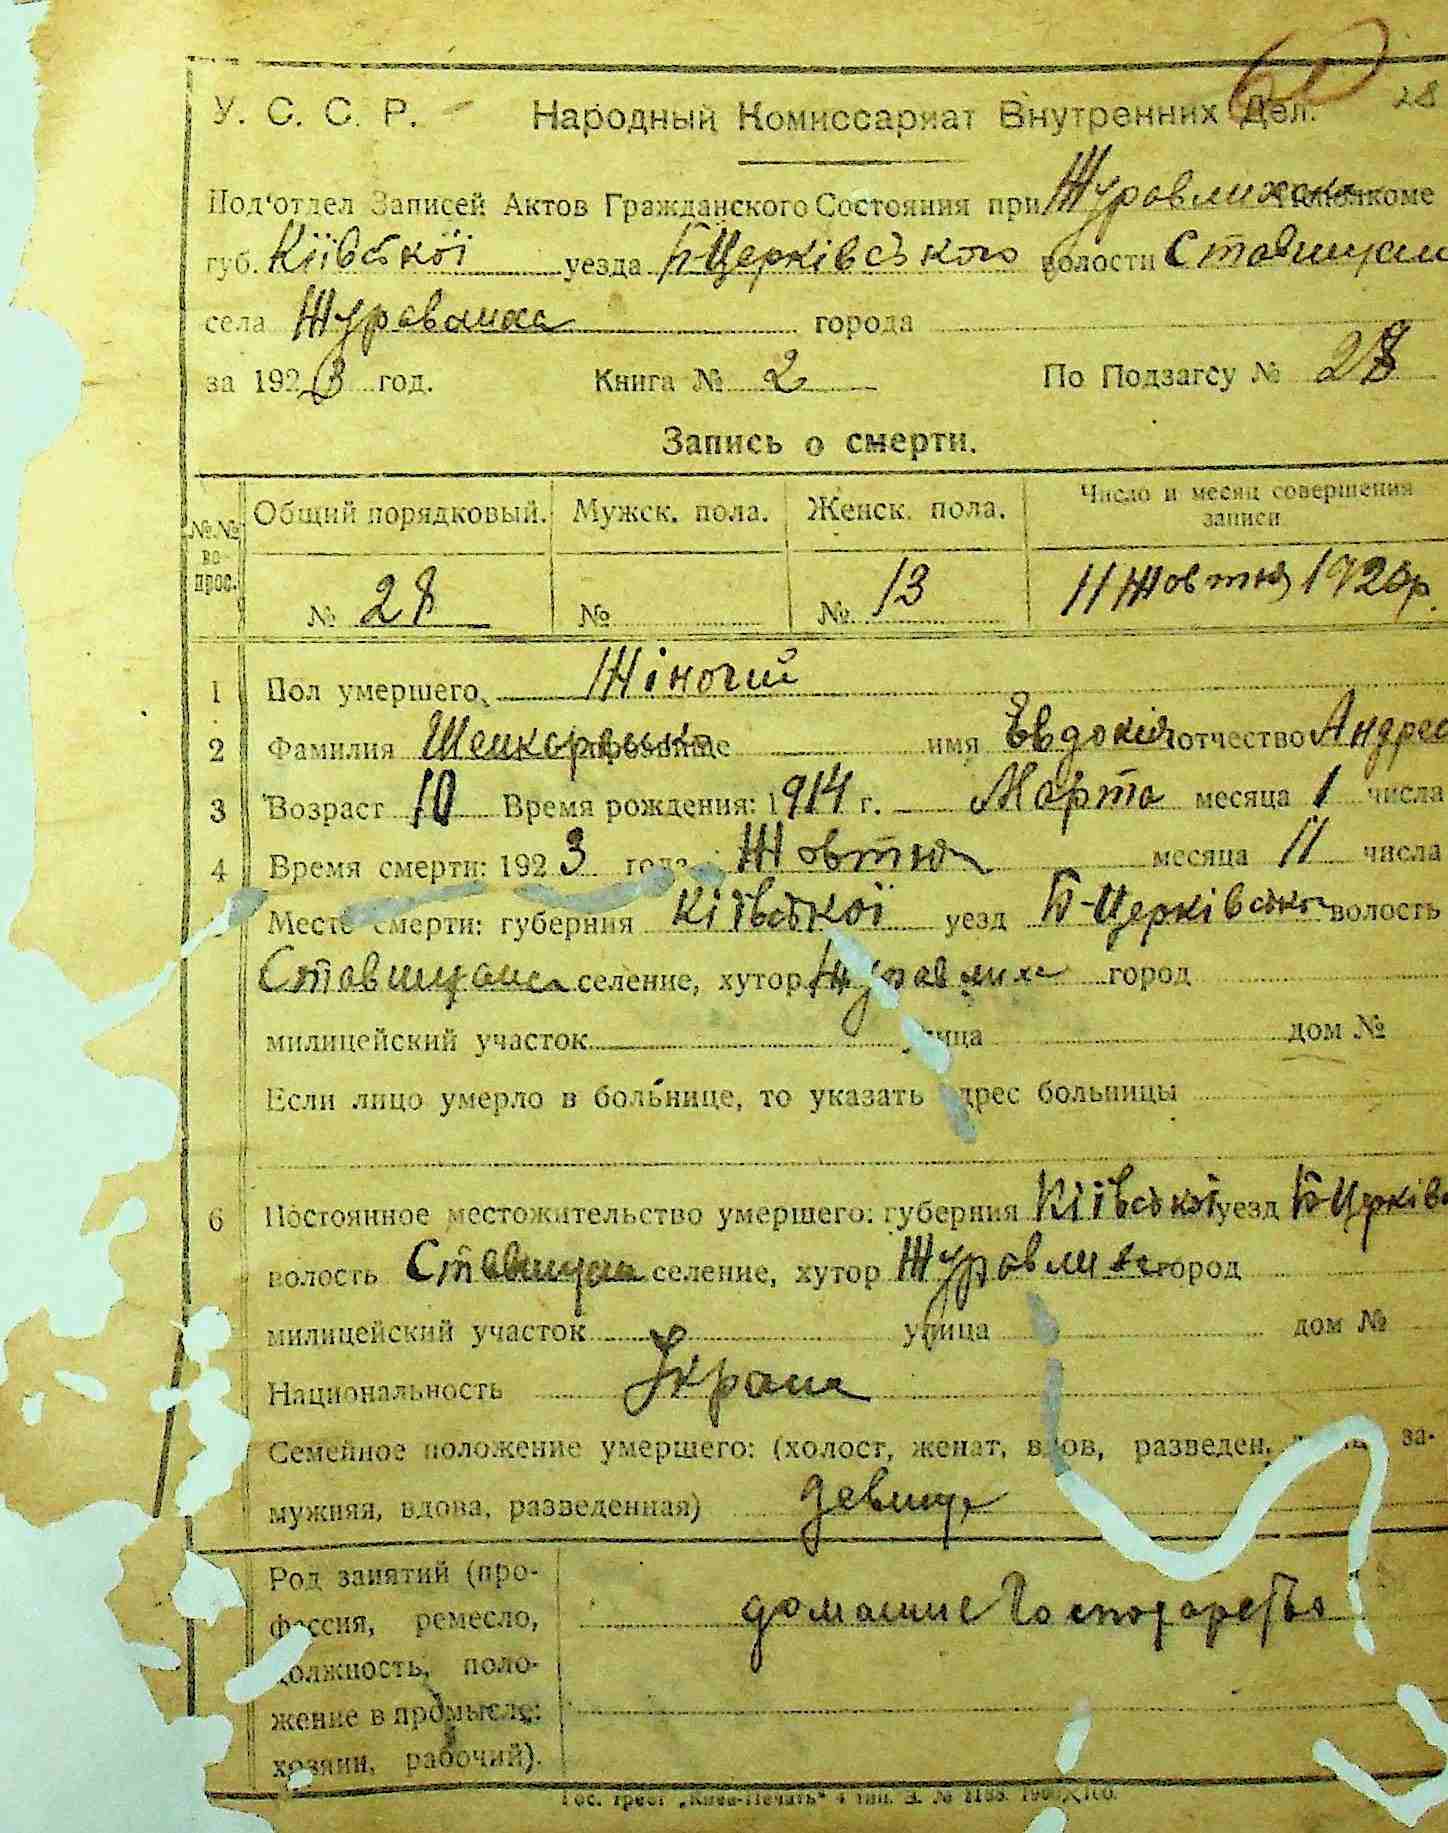 28
У. С. С. Р. Народный Комиссариат Внутренних Дел.
Под'отдел Записей Актов Гражданского Состояния при
губ. Київської уезда Б-Церківського волости Ставищан
села Журавлиха города
за 1923 год. Книга № 2 По Подзагсу № 28
Запись о смерти.
№№ вопрос. Общий порядковый. Мужск. пола. Женск. пола. Число и месяц совершения записи
№ 28 № № 13 11 Жовтня
1 Пол умершего Жіночий
2 Фамилия имя Евдокія отчество Андрее
3 Возраст 10 Время рождения: 1914 г. Марта месяца 1 числа
4 Время смерти: 1923 года Жовтня месяца 11 числа
Место смерти: губерния Київської уезд Б-Церківсько волость
Ставищан селение, хутор Журавлиха город
милицейский участок улица дом №
Если лицо умерло в больнице, то указать адрес больницы
6 Постоянное местожительство умершего: губерния Київської уезд Б-Церків
волость Ставищан селение, хутор Журавлиха город
милицейский участок улица дом №
Национальность Украин
Семейное положение умершего: (холост, женат, вдов, разведен, за-
мужняя, вдова, разведенная) девица
Род занятий (про-
фессия, ремесло, домашне Господарство
должность, поло-
жение в промысле:
хозяин, рабочий).
Гос. трест „Киев-Печать“ 4 тип. З. №